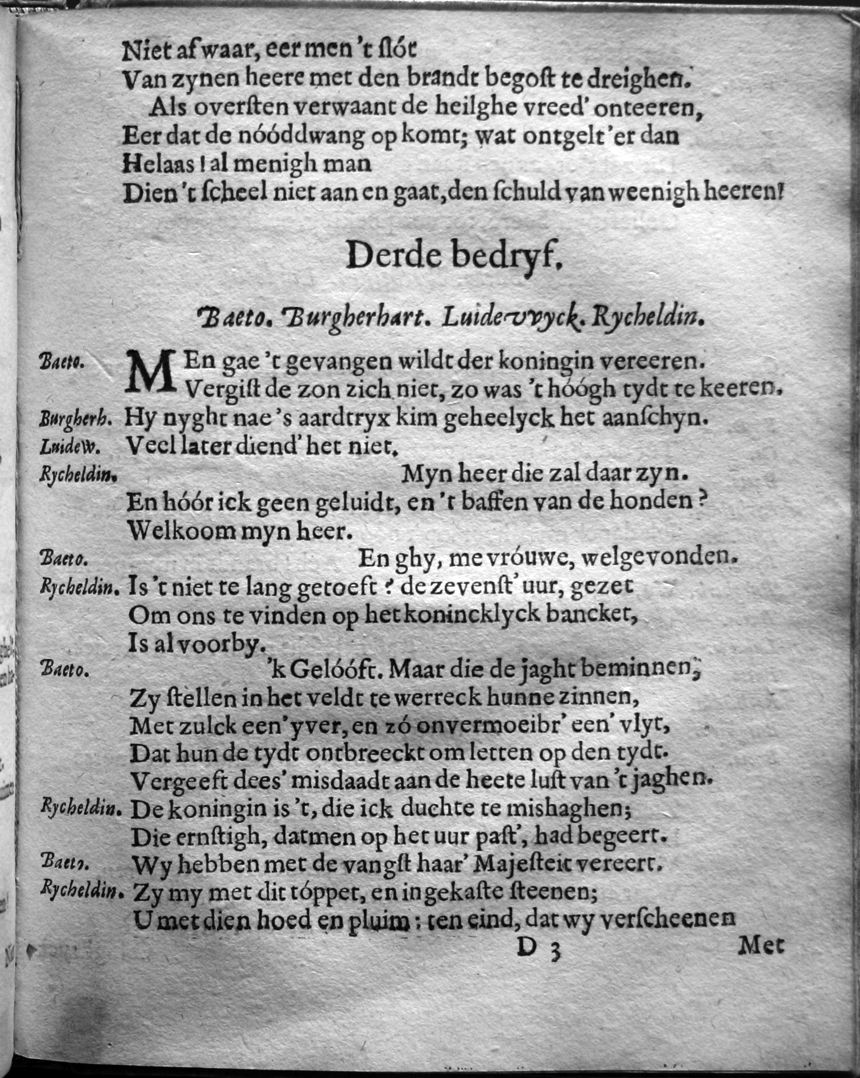 Niet af waar, eer men 't ſlót
Van zynen heere met den brandt begoſt te dreighen.
Als overſten verwaant de heilghe vreed' onteeren,
Eer dat de nóóddwang op komt; wat ontgelt 'er dan
Helaas! al menigh man
Dien 't ſcheel niet aan en gaat, den ſchuld van weenigh heeren!
Derde bedryf.
Baeto. Burgherhart. Luidewyck. Rycheldin.
Baeto. MEn gae 't gevangen wildt der koningin vereeren.
Vergiſt de zon zich niet, zo was 't hóógh tydt te keeren.
Burgherh. Hy nyght nae 's aardtryx kim geheelyck het aanſchyn.
Luidew. Veel later diend' het niet.
Rycheldin. Myn heer die zal daar zyn.
En hóór ick geen geluidt, en 't baffen van de honden?
Welkoom myn heer.
Baeto. En ghy, me vróuwe, welgevonden.
Rycheldin. Is 't niet te lang getoeft? de zevenſt' uur, gezet
Om ons te vinden op het konincklyck bancket,
Is al voorby.
Baeto. 'k Gelóóft. Maar die de jaght beminnen,
Zy ſtellen in het veldt te werreck hunne zinnen,
Met zulck een' yver, en zó onvermoeibr' een' vlyt,
Dat hun de tydt ontbreeckt om letten op den tydt.
Vergeeft dees' misdaadt aan de heete luſt van 't jaghen.
Rycheldin. De koningin is 't, die ick duchte te mishaghen;
Die ernſtigh, datmen op het uur paſt', had begeert.
Baeto. Wy hebben met de vangſt haar' Majeſteit vereert.
Rycheldin. Zy my met dit tóppet, en ingekaſte ſteenen;
U met dien hoed en pluim: ten eind, dat wy verſcheenen
D 3 Met